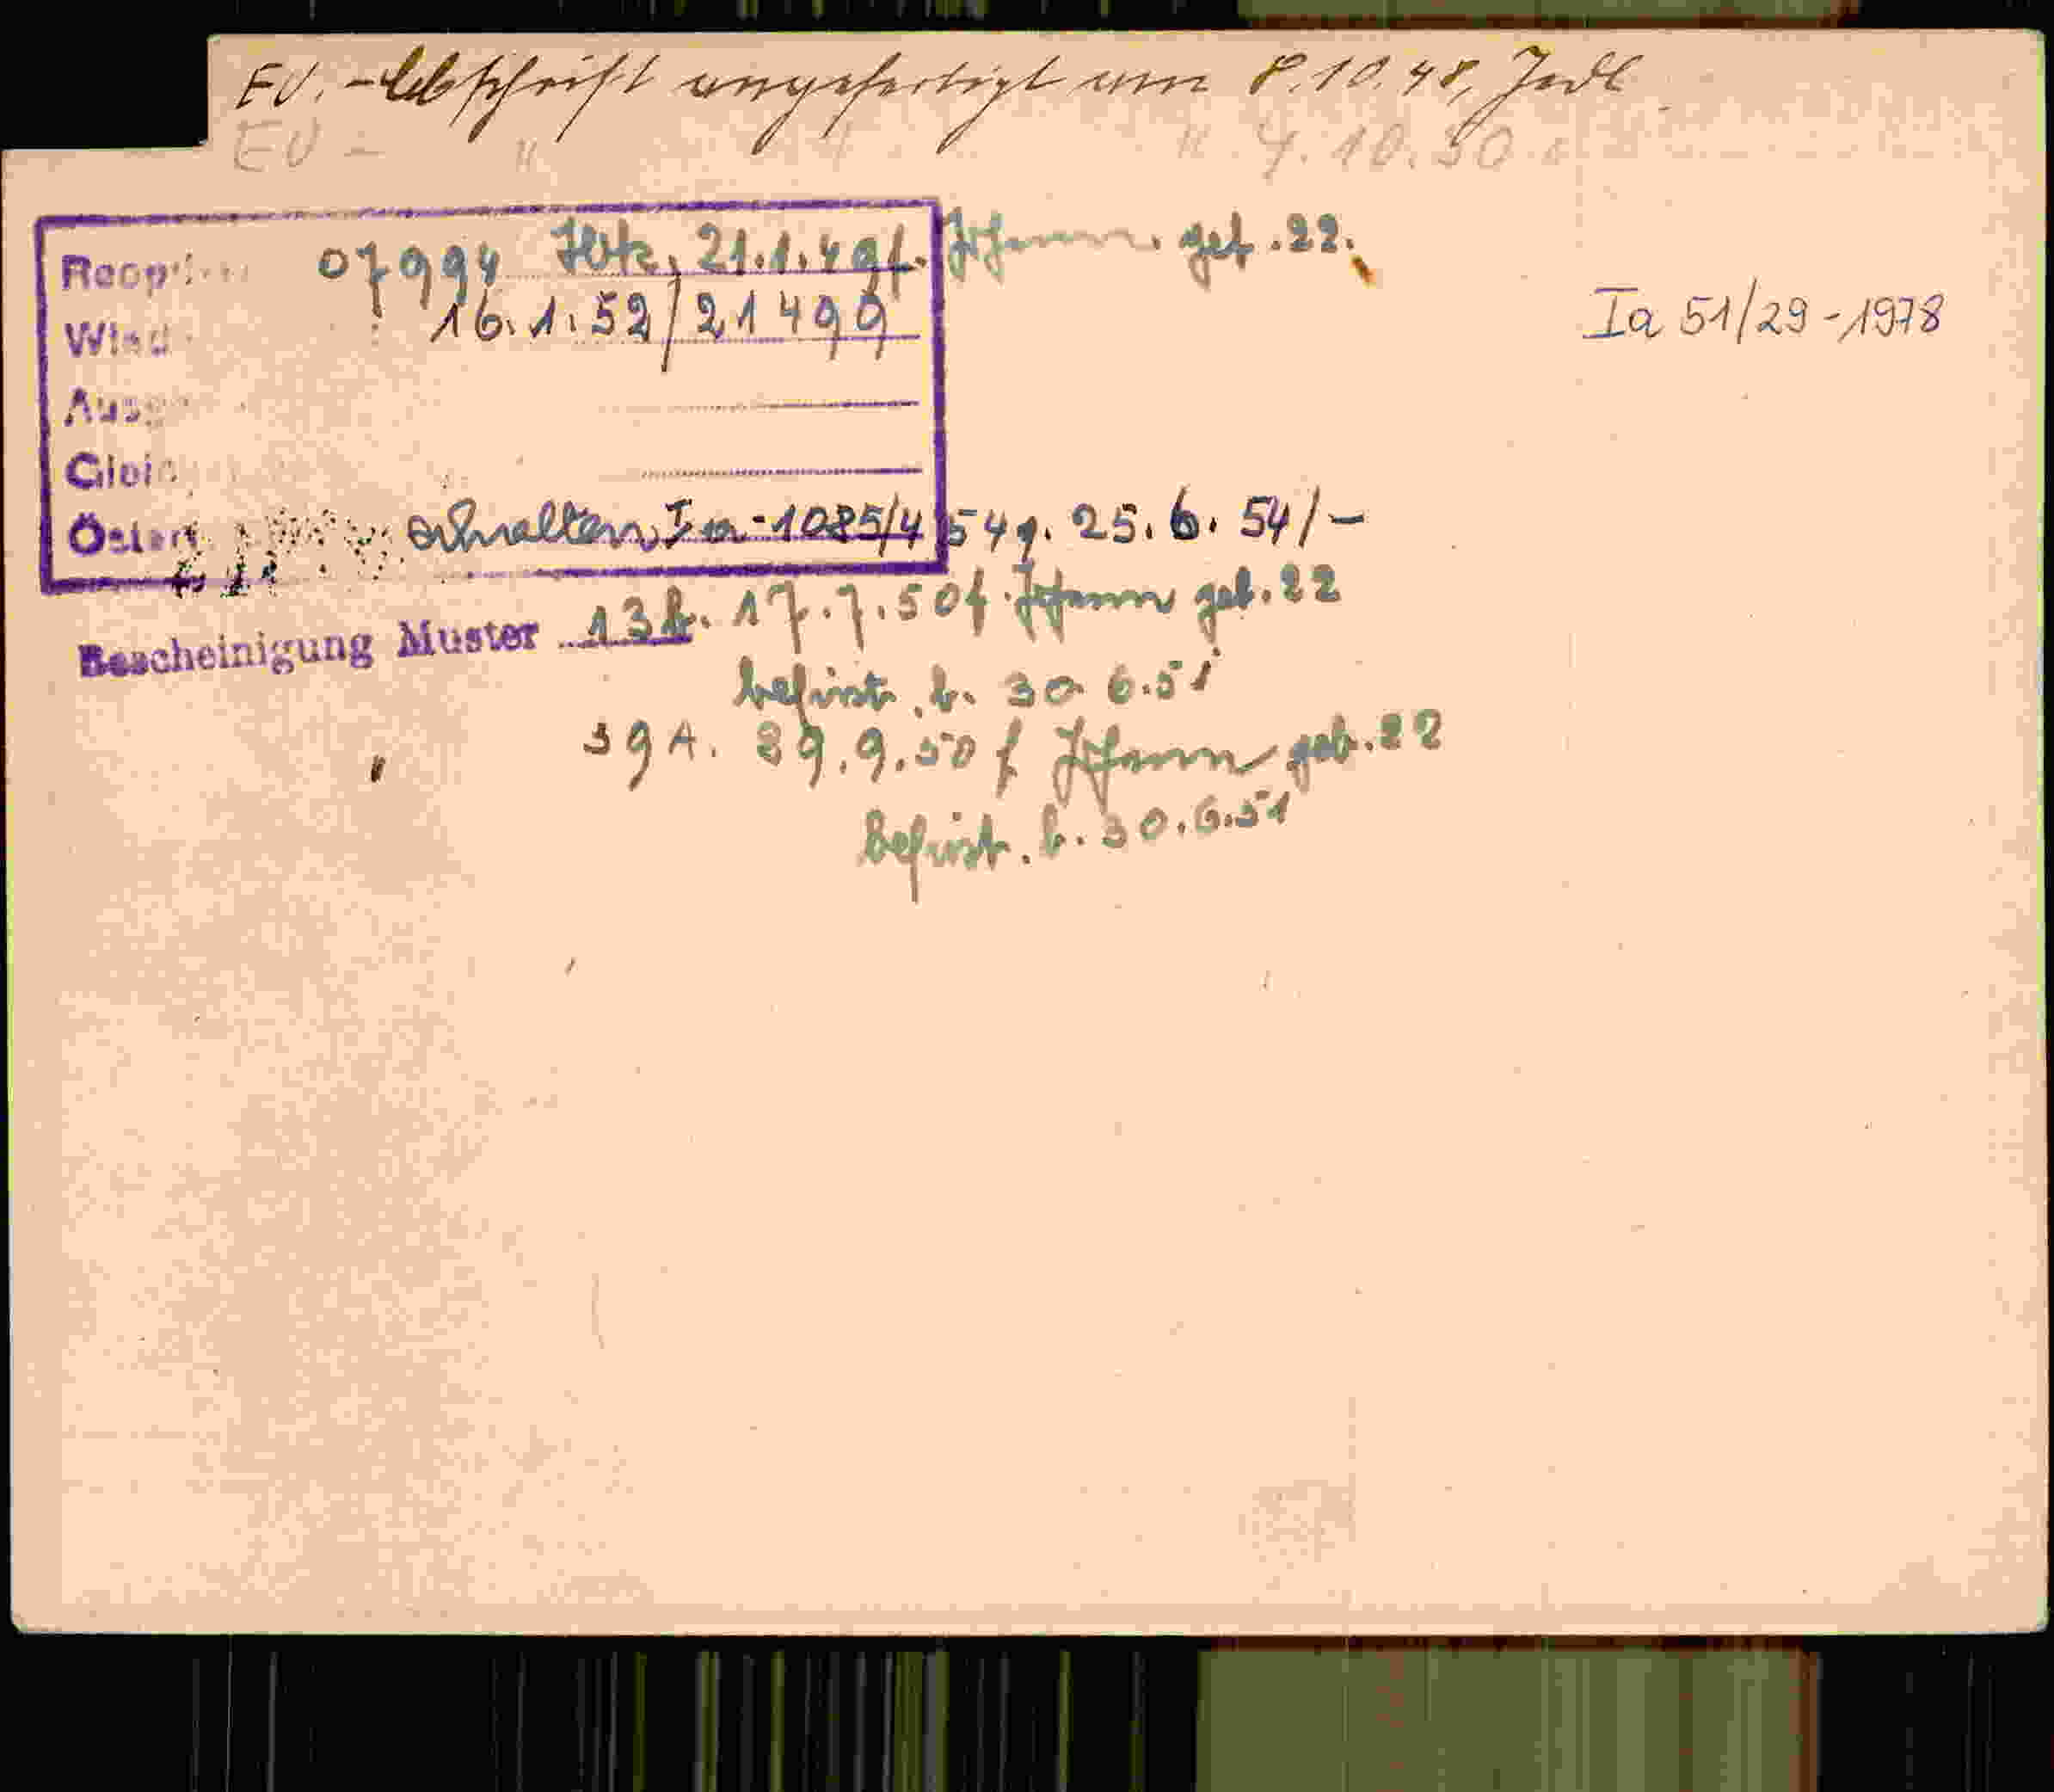 EV. - Abschrift angefertigt am 8.10.48, Jedl
EV - " " " 4.10.50
07994 21.1.49 f. Johann. geb. 22.
16.1.52/21499
Ia 51/29-1978
erhalten Ia-1085/4 54 g. 25.6.54/-
Bescheinigung Muster 13k. 17.7.50 f. Johann geb. 22
befrist. b. 30 6.51
39A. 29.9.50 f Johann geb. 22
befrist. b. 30.6.51